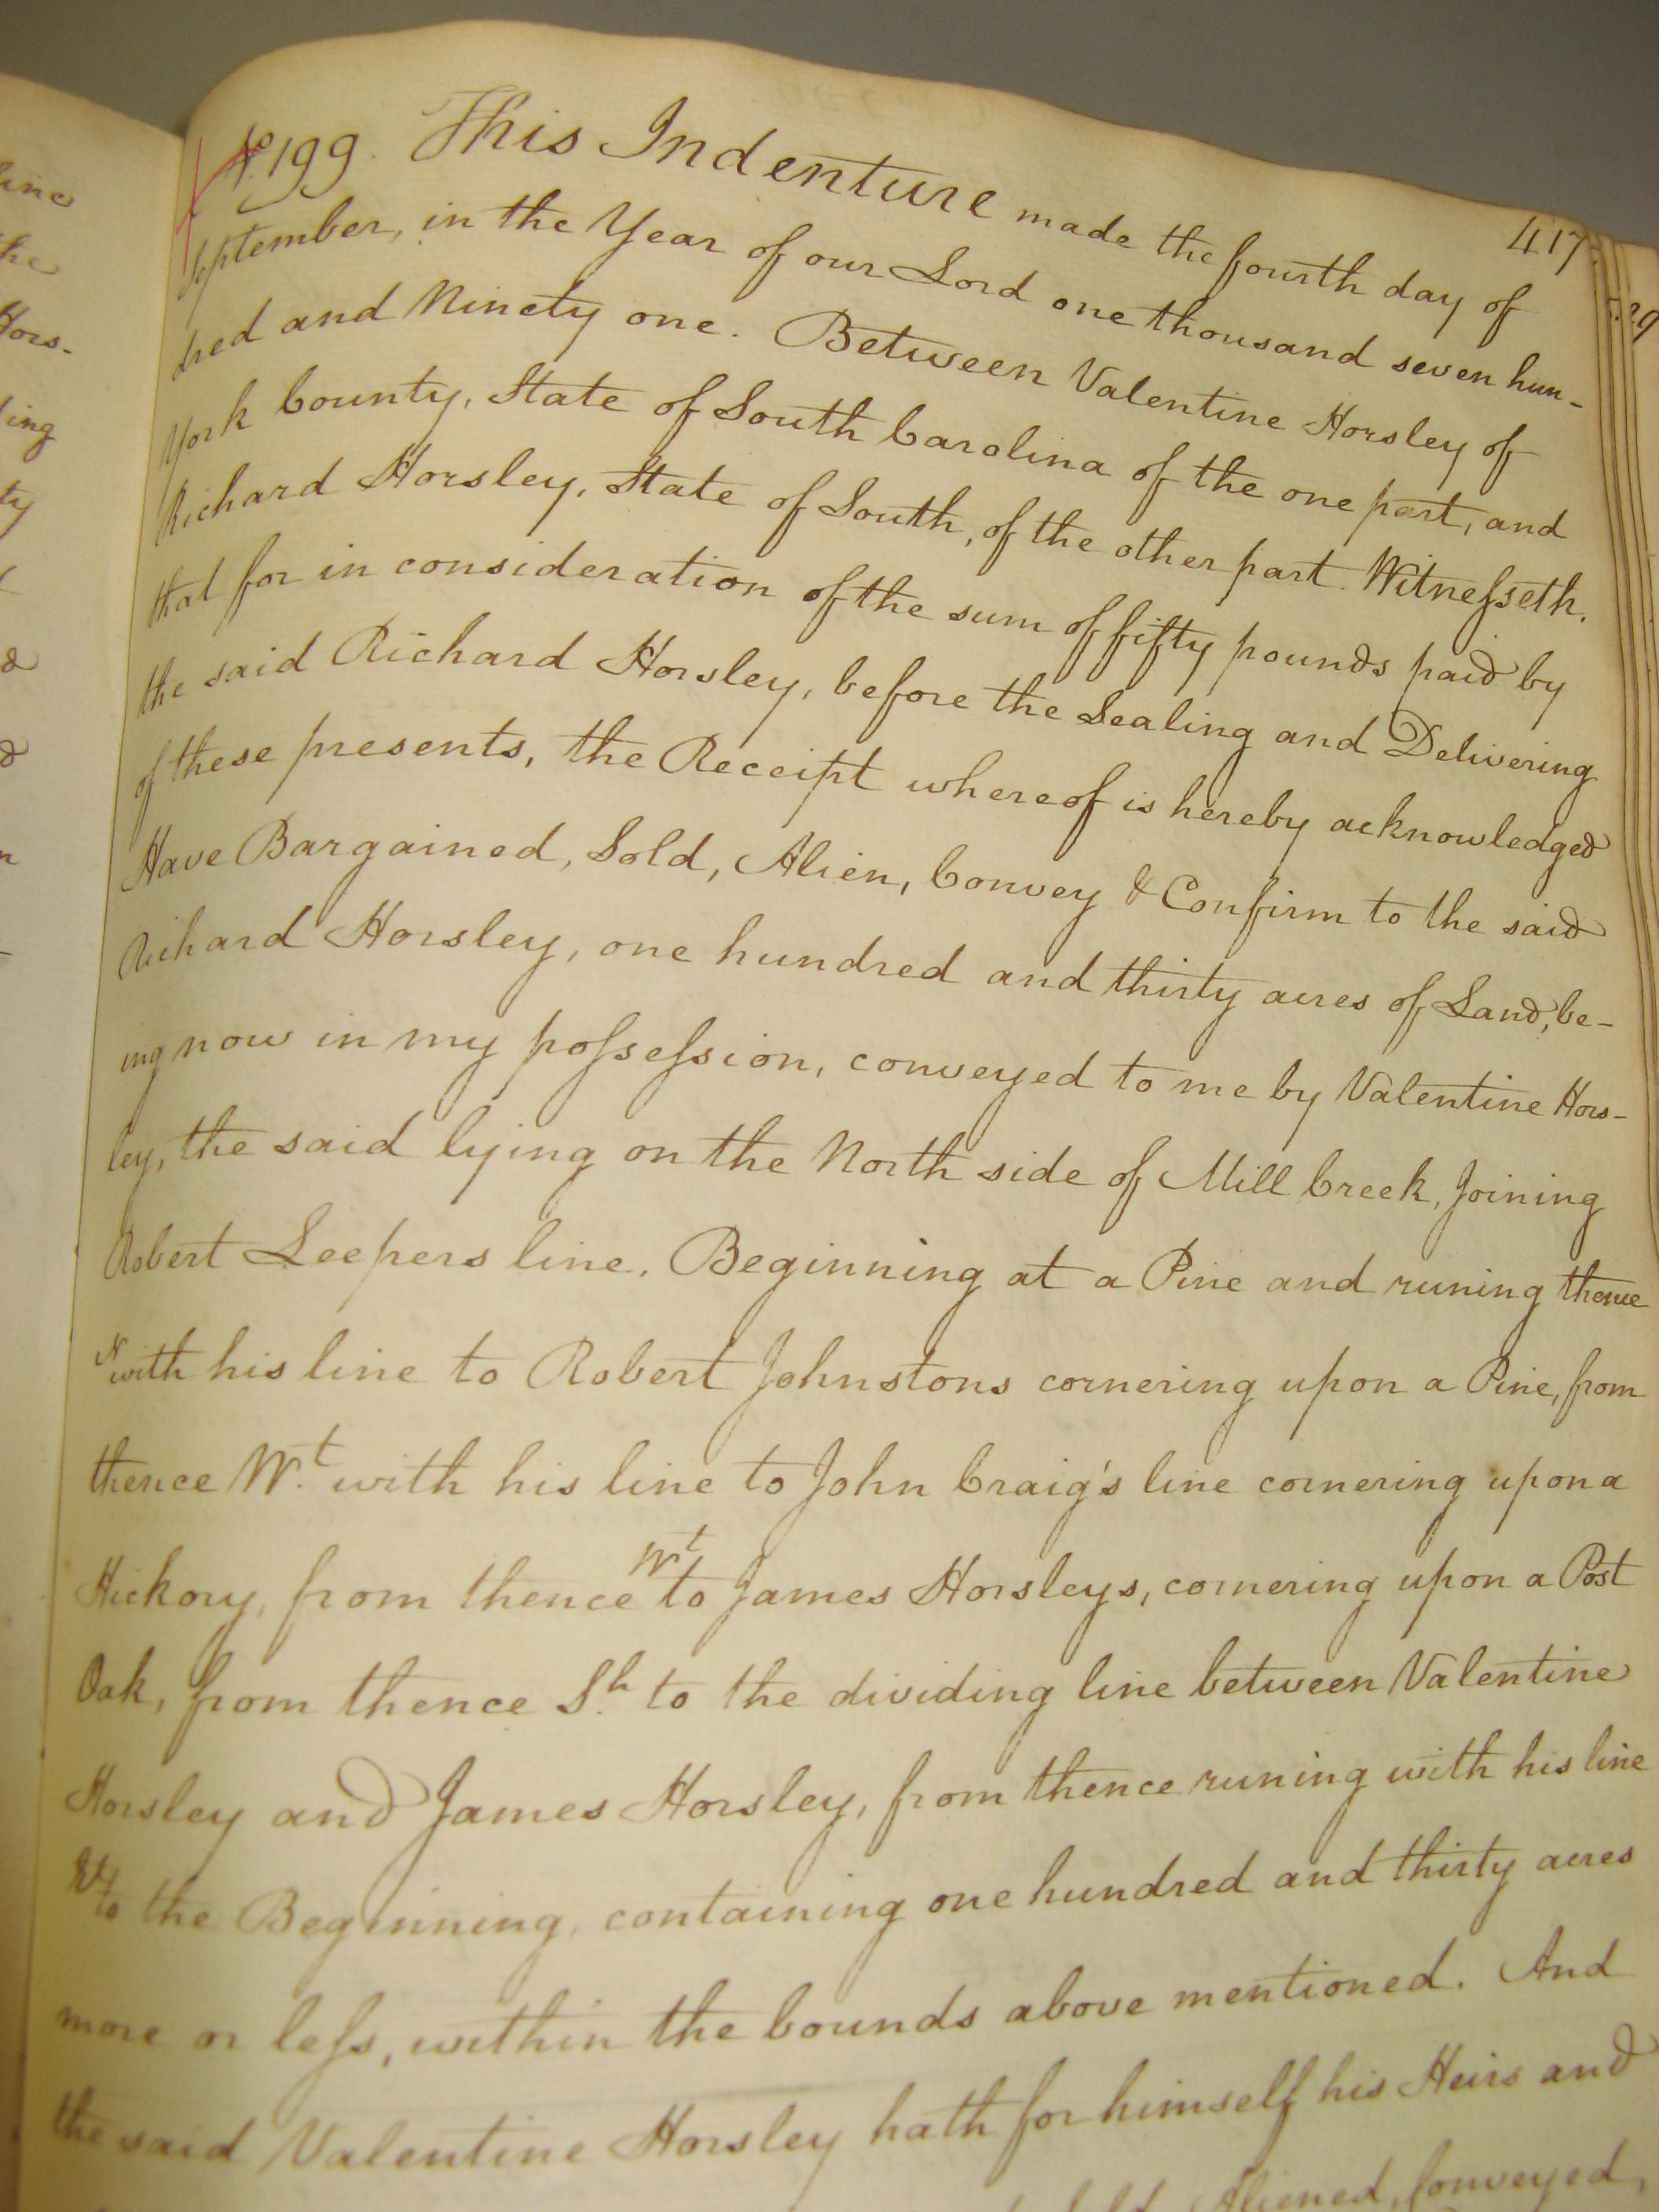 417
No. 199. This Indenture made the fourth day of
September, in the Year of our Lord one thousand seven hun-
dred and Ninety one. Between Valentine Horsley of
York County, State of South Carolina of the one part, and
Richard Horsley, State of South, of the other part. Witneſseth.
that for in consideration of the sum of fifty pounds paid by
the said Richard Horsley, before the Sealing and Delivering
of these presents, the Receipt whereof is hereby acknowledged
Have Bargained, Sold, Alien, Convey & Confirm to the said
Richard Horsley, one hundred and thirty acres of Land, be-
ing now in my poſseſsion, conveyed to me by Valentine Hors-
ley, the said lying on the North side of Mill Creek, Joining
Robert Leepers line. Beginning at a Pine and runing thence
N with his line to Robert Johnstons cornering upon a Pine, from
thence Wt. with his line to John Craig's line cornering upon a
Hickory, from thence Wt to James Horsleys, cornering upon a Post
Oak, from thence Sh. to the dividing line between Valentine
Horsley and James Horsley, from thence runing with his line
Et to the Beginning, containing one hundred and thirty acres
more or leſs, within the bounds above mentioned. And
the said Valentine Horsley hath for himself his Heirs and
Aliened, Conveyed,